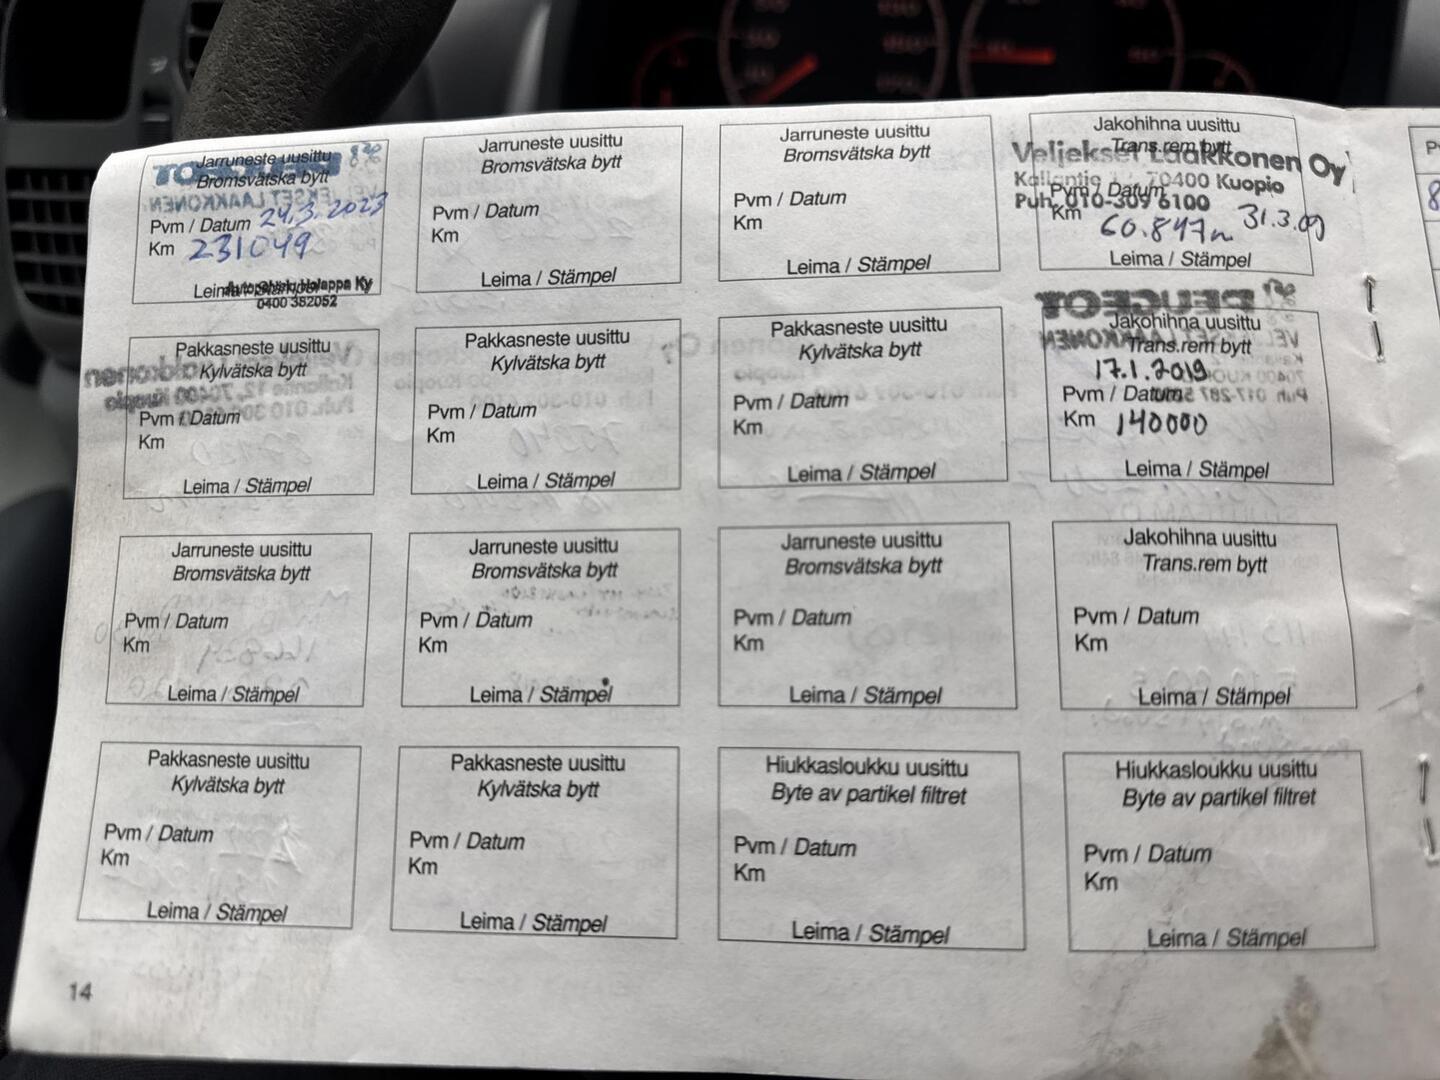 Jarruneste uusittu
Bromsvätska bytt
Pvm / Datum 24.3.2023
Km 231049
Leima / Stämpel
Holappa Ky
0400 382052
Jarruneste uusittu
Bromsvätska bytt
Pvm / Datum
Km
Leima / Stämpel
Jarruneste uusittu
Bromsvätska bytt
Pvm / Datum
Km
Leima / Stämpel
Jakohihna uusittu
Trans.rem bytt
Veljekset Laakkonen Oy
70400 Kuopio
Pvm / Datum
Puh. 010-309 6100
Km 60.847 31.3.09
Leima / Stämpel
Pakkasneste uusittu
Kylvätska bytt
Pvm / Datum
Km
Leima / Stämpel
Pakkasneste uusittu
Kylvätska bytt
Pvm / Datum
Km
Leima / Stämpel
Pakkasneste uusittu
Kylvätska bytt
Pvm / Datum
Km
Leima / Stämpel
Jakohihna uusittu
Trans.rem bytt
17.1.2019
Pvm / Datum
Km 140000
Leima / Stämpel
Jarruneste uusittu
Bromsvätska bytt
Pvm / Datum
Km
Leima / Stämpel
Jarruneste uusittu
Bromsvätska bytt
Pvm / Datum
Km
Leima / Stämpel
Jarruneste uusittu
Bromsvätska bytt
Pvm / Datum
Km
Leima / Stämpel
Jakohihna uusittu
Trans.rem bytt
Pvm / Datum
Km
Leima / Stämpel
Pakkasneste uusittu
Kylvätska bytt
Pvm / Datum
Km
Leima / Stämpel
Pakkasneste uusittu
Kylvätska bytt
Pvm / Datum
Km
Leima / Stämpel
Hiukkasloukku uusittu
Byte av partikel filtret
Pvm / Datum
Km
Leima / Stämpel
Hiukkasloukku uusittu
Byte av partikel filtret
Pvm / Datum
Km
Leima / Stämpel
14